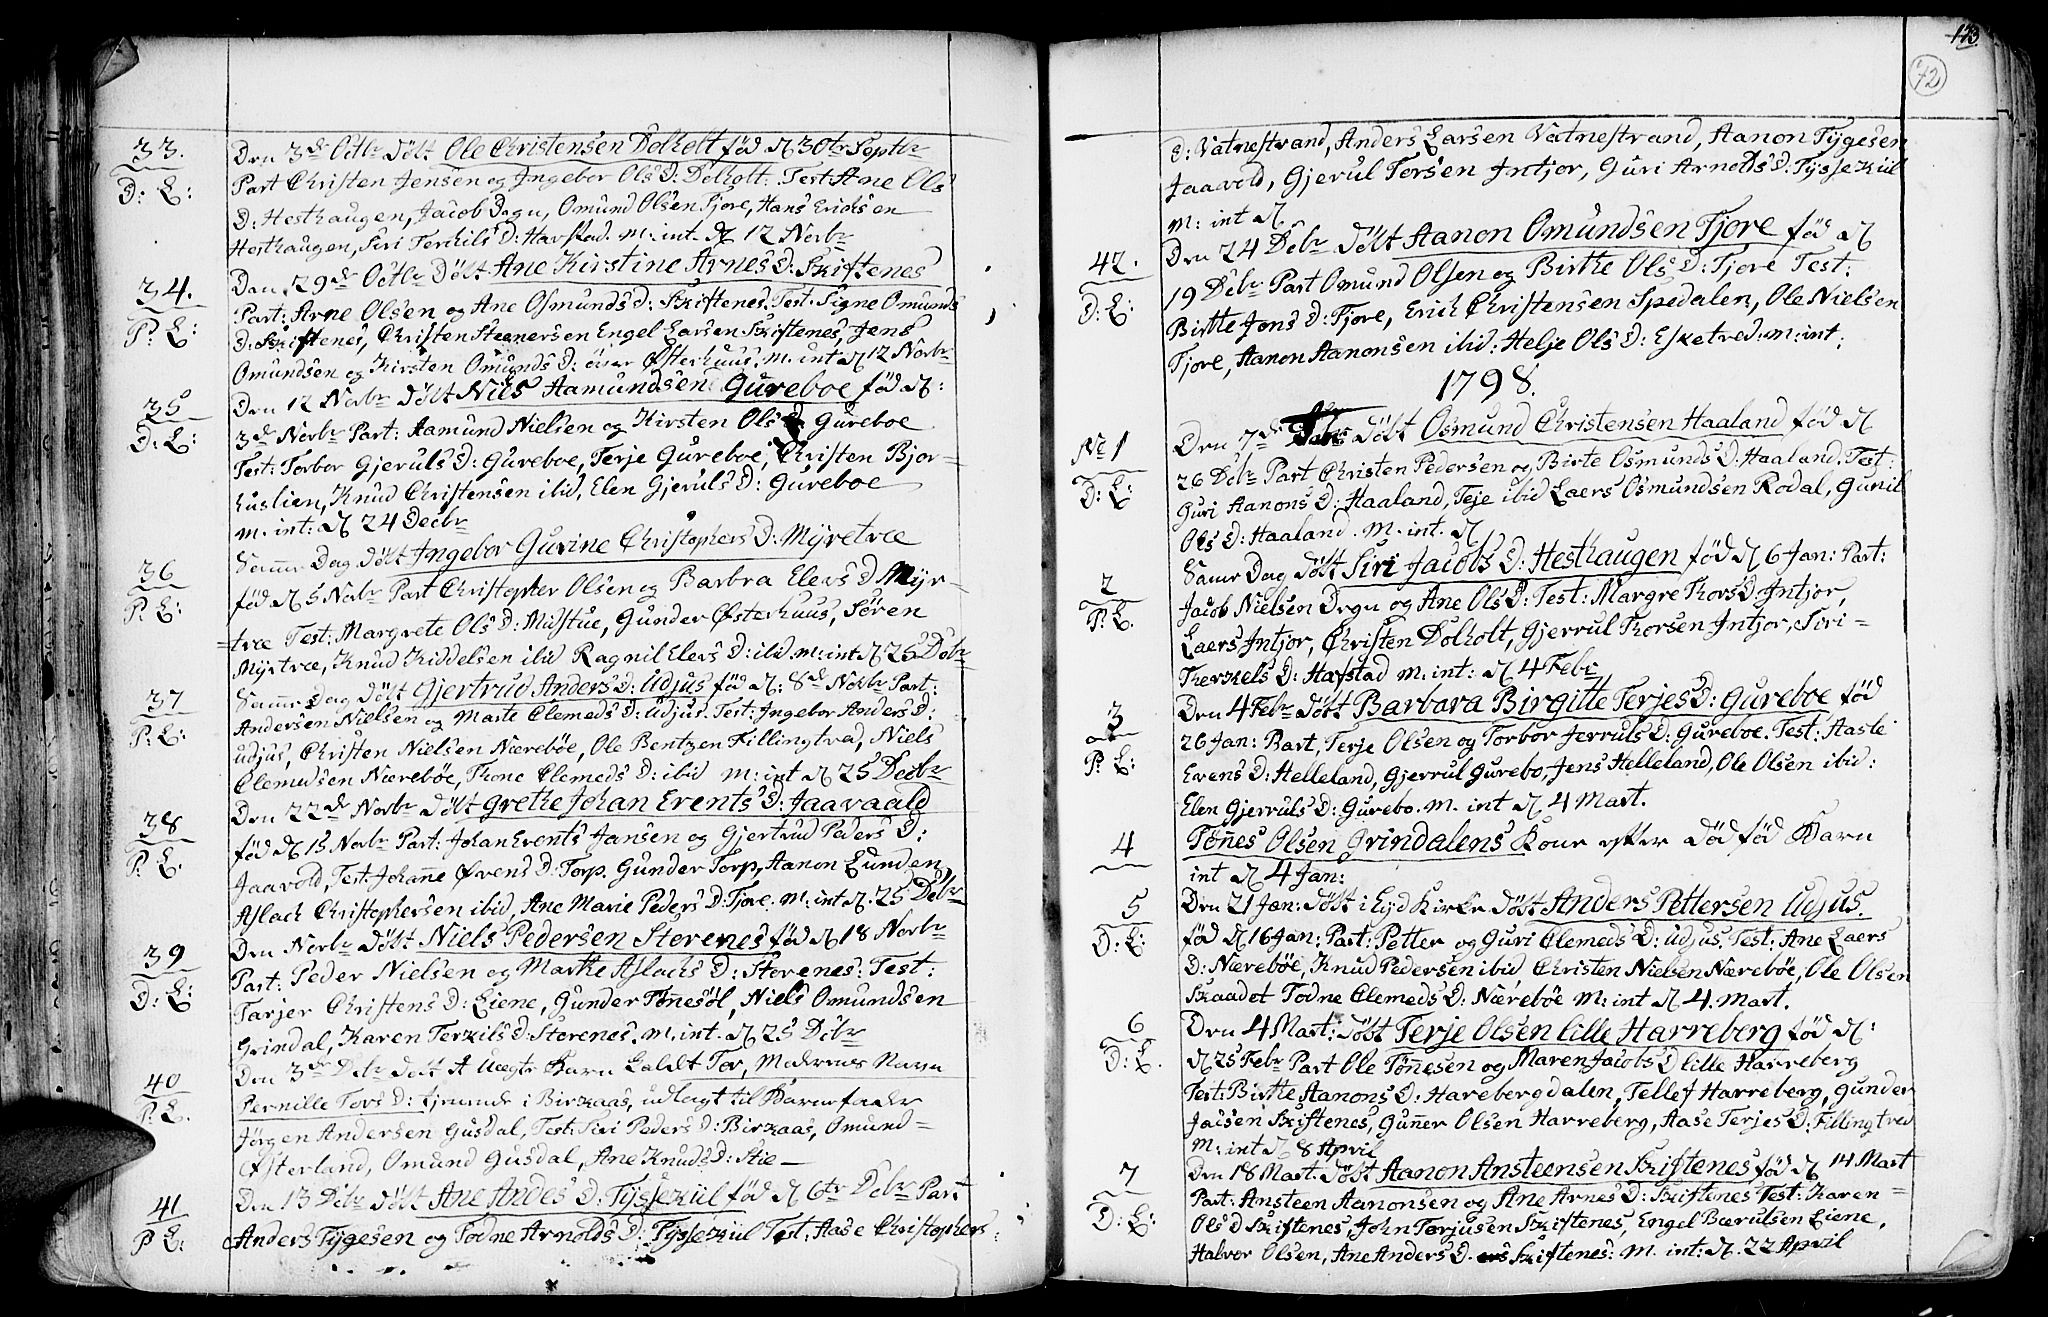 33.
Den 3de Octbr Døbt Ole Christensen Dolholt fød d 30te Septbr
D: E:
Part Christen Jensen og Ingebor Ols D: Dolholt. Test Ane Ols
D: Hesthaugen, Jacob Degn, Omund Olsen Fjore, Hans Erichsen
Hesthaugen, Siri Terchils D: Havstad. m: int. d 12 Novbr
34.
Den 29de Octbr Døbt Ane Kirstine Arnes D: Skiftenes
Part: Arne Olsen og Ane Osmunds D: Skiftenes. Test. Signe Omunds
P: E:
D: Skiftenes, Christen Steenersen Engel Larsen Skiftenes, Jens
Omundsen og Kirsten Omunds D: Østerhuus. m. int d 12 Novbr
35
Den 12 Novbr Døbt Niels Aamundsen Gureboe fød d:
D: E:
3de Novbr Part: Aamund Nielsen og Kirsten Ols D Gureboe
Test: Torbor Gjeruls D: Gureboe, Terje Gureboe, Christen Bjor-
huslien, Knud Christensen ibid, Elen Gjeruls D: Gureboe
m. int: d 24 Decbr
36
Samme Dag Døbt Ingebor Gurine Christophers D: Myretræ
fød d 5 Novbr Part Christopher Olsen og Barbra Elevs D Myr-
P: E:
=træ Test: Margrete Ols D: Mustue, Gunder Østerhuus, Søren
Myrtræ, Knud Kiddelsen ibid Ragnil Elevs D: ibid. m: int d 25 Debr
37
Samme Dag Døbt Gjertrud Anders D: Udjus fød d: 8de Novbr Part:
Andersen Nielsen og Marte Clemeds D: Udjus. Test: Ingebor Anders D:
P: E:
udjus, Christen Nielsen Nærebøe, Ole Bentzen Fillingtvæd, Niels
Clemedsen Nærebøe, Thone Clemeds D: ibid m: int d 25 Decbr
38
Den 22de Novbr Døbt Grethe Johan Erents D: Jaavaald
fød d 15 Novbr Part: Johan Erents Jansen og Gjertrud Peders D:
P: E:
Jaavold, Test: Johanne Øvrens D: Torp. Gunder Torp, Aanon Lunden
Aslach Christophersen ibid, Ane Marie Peders D: Fjore. m: int d. 25 Debr
39
Den Novbr Døbt Niels Pedersen Storenes fød d 18 Novbr
Part: Peder Nielsen og Marthe Aslachs D: Storenes: Test:
D: E:
Tarjer Christens D: Liene, Gunder Tønesøl, Niels Omundsen
Grindal, Karen Terkils D: Storenes. m. int. d 25 Debr
40
Den 3de Debr døbt et Uægte Barn kaldt Tor, Moderens Navn
P: E.
Pernille Tors D: tjenende i Birkaas, udlagt til Barnefader
Jørgen Andersen Gusdal, Test: Siri Peders D: Birkaas, Omund=
Østerland, Omund Gusdal, Ane Knuds D: Stie—
41
Den 13 Debr Døbt Ane Andes D: Tyssekiil fød d 6te Debr Part
P E:
Anders Tygesen og Todne Arnolds D: Tyssekiil Test: Aase Christophers
173
72
D: Vatnestrand, Anders Larsen Vatnestrand, Aanon Tygesen
Jaavold, Gjerul Torsen Intjor, Guri Arnolds D: Tyssekiil
m: int d
42.
Den 24 Debr Døbt Aanon Omundsen Fjore fød d
D: E:
19 Debr Part Omund Olsen og Birthe Ols D: Fjore Test:
Birthe Jons D: Fjore, Erich Christensen Spedalen, Ole Nielsen
Fjore, Aanon Aanonsen ibid: Helje Ols D: Esketved: m: int:
1798.
No 1
Den 7de Døbt Osmund Christensen Haaland fød d
D: E:
26 Debr Part Christen Pedersen og Birte Osmunds D: Haaland. Test:
Guri Aanons D: Haaland, Teje ibid Laers Osmundsen Rodal, Gunil
Ols D: Haaland. m. int. d
2
Samme Dag Døbt Siri Jacobs D: Hesthaugen fød d 6 Jan: Part:
P: E.
Jacob Nielsen Degn og Ane Ols D: Test: Margre Thors D: Intjor,
Laers Intjor, Christen Dolholt, Gjerrul Thorsen Intjor, Siri=
Therkels D: Hafstad m. int: d 4 Febr
3
Den 4 Febr Døbt Barbara Birgitte Terjes D: Gureboe fød
P: E:
26 Jan: Part, Terje Olsen og Torbor Jerruls D: Gureboe. Test: Aaste
Evens D: Helleland, Gjerrul Gurebo, Jens Helleland, Ole Olsen ibid:
Elen Gjerruls D: Gurebo. m. int d 4 Mart.
4
Tønes Olsen Grindalens Kone efter Død fød Barn
int d 4 Jan:
5
Den 21 Jan: Døbt i Eyd Kirke Døbt Anders Pettersen Udjus.
D: E:
fød d 16 Jan: Part: Petter og Guri Clemeds D: udjus, Test: Ane Laers
D: Nærebøe, Knud Pedersen ibid Christen Nielsen Nærebøe, Ole Olsen
Skaadet Todne Clemeds D: Nærebøe m: int d 4. Mart.
6
Den 4 Mart: Døbt Terje Olsen lille Harreberg fød d:
D: E.
d 25 Febr Part Ole Tønesen og Maren Jacobs D lille Harreberg
Test: Birthe Aanons D: Harebergdalen, Tellef Harreberg, Gunder
Jacsen Skiftenes, Gunner Olsen Harreberg, Aase Terjes D: Fillingtvæd
m: int d 8 April
7
Den 18 Mart. Døbt Aanon Ansteensen Skiftenes fød d 14 Mart
Part: Ansteen Aanonsen og Ane Arnes D: Skiftenes Test: Karen=
D: E:
Ols D Skiftenes, John Torjusen Skiftenes, Engel Bærulsen Liene,
Halvor Olsen, Ane Anders D. Skiftenes: m. int: d. 22 April